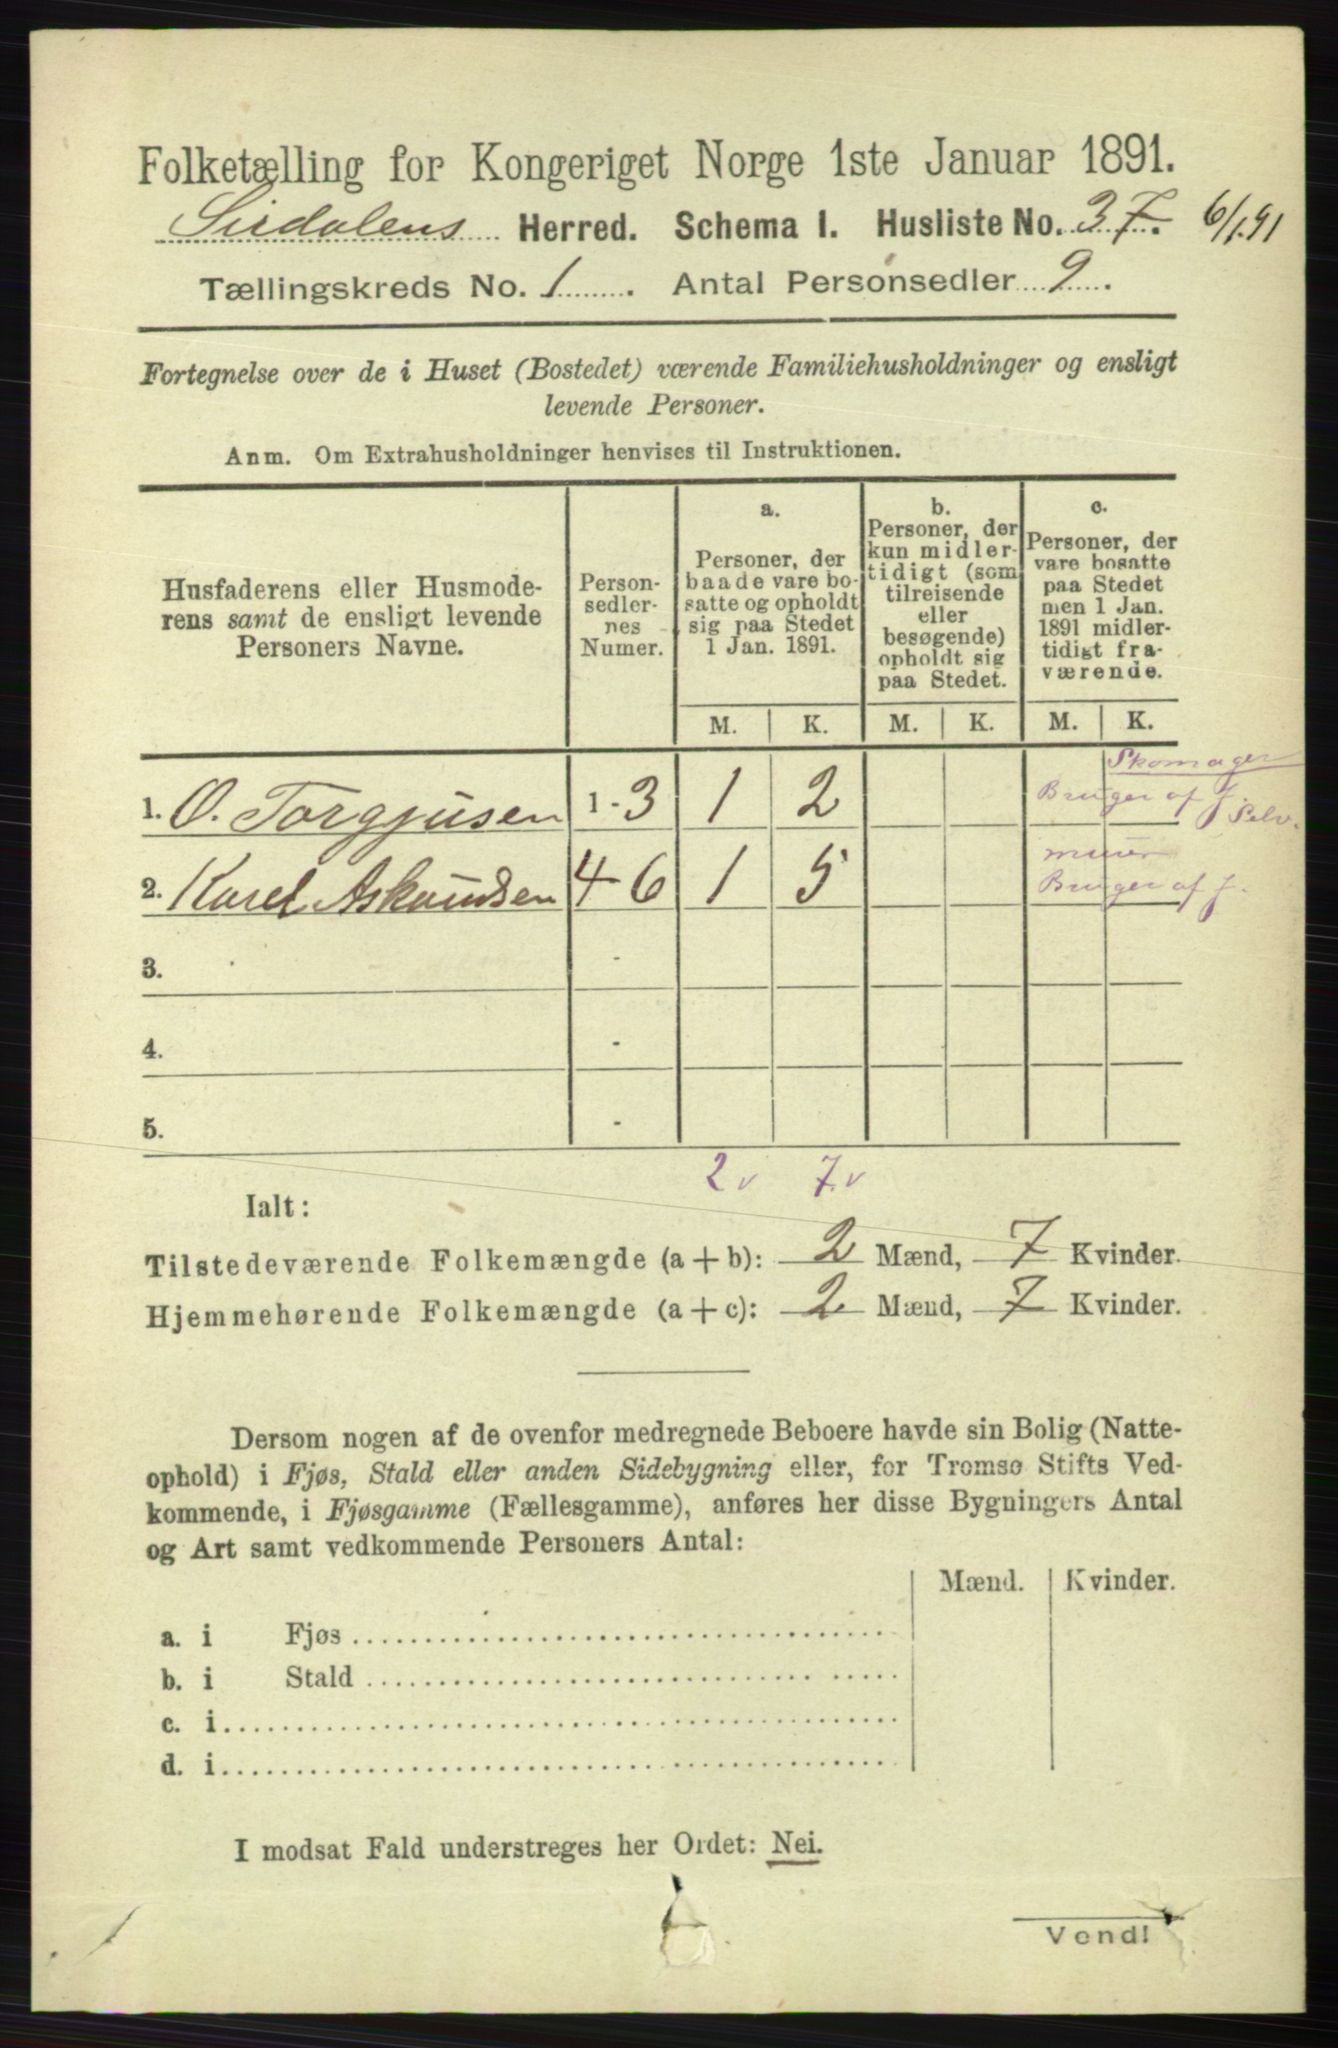 Folketælling for Kongeriget Norge 1ste Januar 1891.
Sirdalens Herred. Schema I. Husliste No. 37. 6/1.91
Tællingskreds No. 1. Antal Personsedler 9.
Fortegnelse over de i Huset (Bostedet) værende Familiehusholdninger og ensligt
levende Personer.
Anm. Om Extrahusholdninger henvises til Instruktionen.
Husfaderens eller Husmode-
rens samt de ensligt levende
Personers Navne.
Person-
sedler-
nes
Numer.
a.
Personer, der
baade vare bo-
satte og opholdt
sig paa Stedet
1 Jan. 1891.
b.
Personer, der
kun midler-
tidigt (som
tilreisende
eller
besøgende)
opholdt sig
paa Stedet.
c.
Personer, der
vare bosatte
paa Stedet
men 1 Jan.
1891 midler-
tidigt fra-
værende.
M. K. M. K. M. K.
Skomager
1. O. Torgjusen 1-3 1 2 Bruger af J. Selv.
2. Karel Askundsen 4-6 1 5 Bruger af J.
3. -
4. -
5. -
2 v 7 v
Ialt:
Tilstedeværende Folkemængde (a + b): 2 Mænd, 7 Kvinder.
Hjemmehørende Folkemængde (a + c): 2 Mænd, 7 Kvinder.
Dersom nogen af de ovenfor medregnede Beboere havde sin Bolig (Natte-
ophold) i Fjøs, Stald eller anden Sidebygning eller, for Tromsø Stifts Ved-
kommende, i Fjøsgamme (Fællesgamme), anføres her disse Bygningers Antal
og Art samt vedkommende Personers Antal:
Mænd. Kvinder.
a. i Fjøs
b. i Stald
c. i
d. i
I modsat Fald understreges her Ordet: Nei.
Vend!